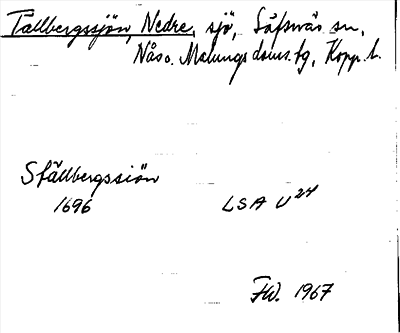 Tallbergssjön, Nedre, sjö, Säfsnäs sn,
Nås o. Malungs doms.tg, Kopp. l.
Ställbergssiön
1696 LSA U24
F.W. 1967